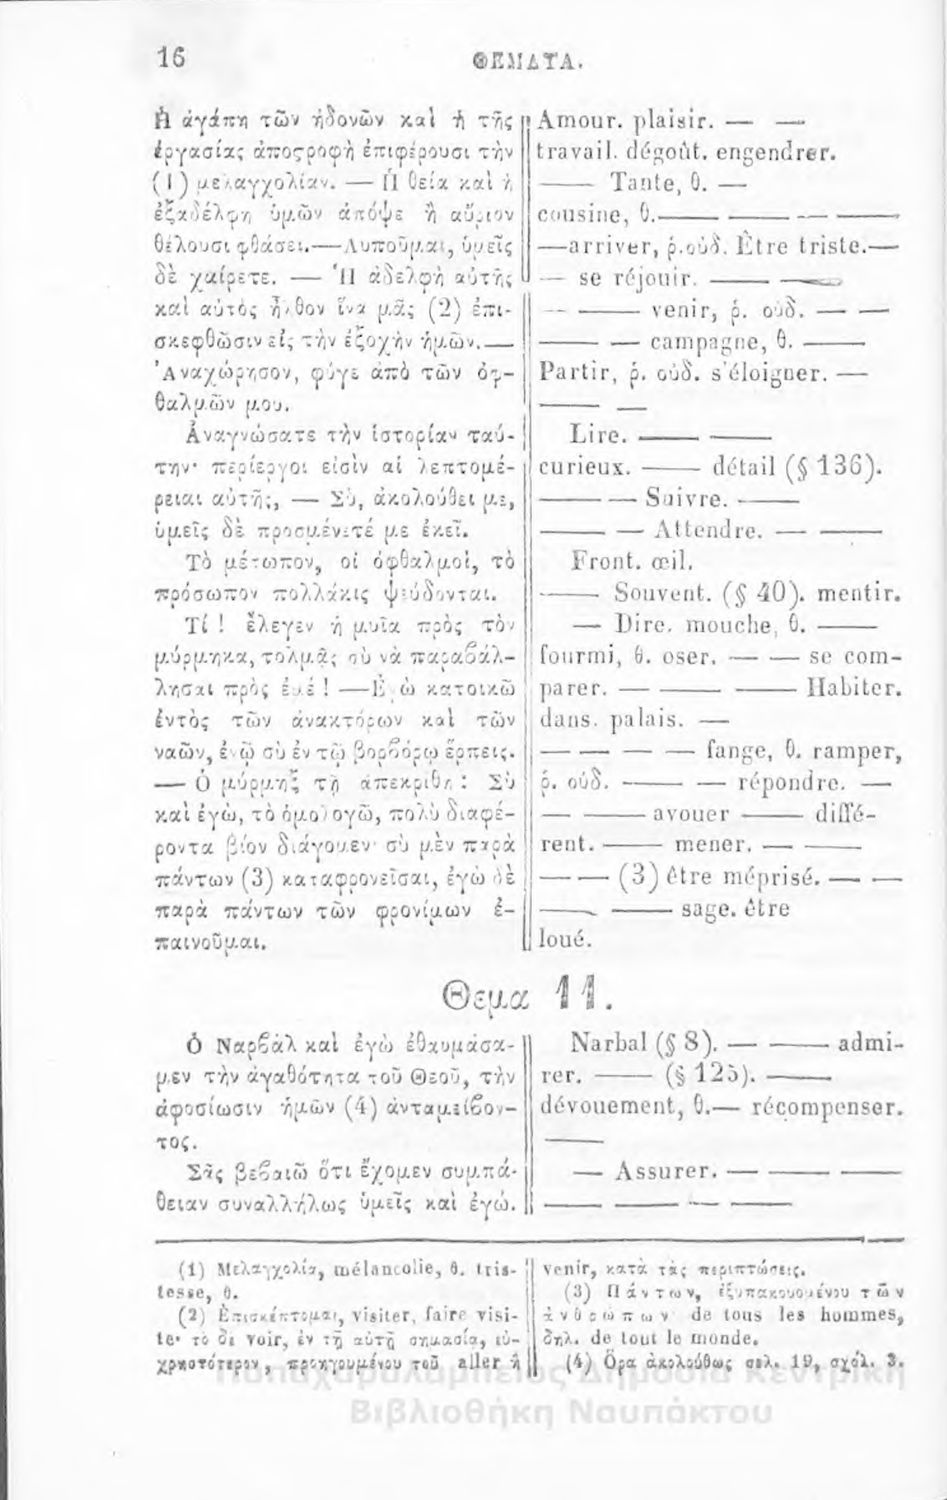 16
ΘΕΜΑΤΑ.
Ἡ ἀγάπη τῶν ἡδονῶν καὶ ἡ τῆς
ἐργασίας ἀποςροφὴ ἐπιφέρουσι τὴν
(1) μελαγχολίαν. — Ἡ θεία καὶ ἡ
ἐξαδέλφη ὑμῶν ἀπόψε ἢ αὔριον
θέλουσι φθάσει.—Λυποῦμαι, ὑμεῖς
δὲ χαίρετε. — Ἡ ἀδελφὴ αὐτῆς
καὶ αὐτὸς ἦλθον ἵνα μᾶς (2) ἐπι-
σκεφθῶσιν εἰς τὴν ἐξοχὴν ἡμῶν.—
Ἀναχώρησον, φύγε ἀπὸ τῶν ὀφ-
θαλμῶν μου.
Ἀναγνώσατε τὴν ἱστορίαν ταύ-
την· περίεργοι εἰσὶν αἱ λεπτομέ-
ρειαι αὐτῆς, — Σὺ, ἀκολούθει με,
ὑμεῖς δὲ προσμένετέ με ἐκεῖ.
Τὸ μέτωπον, οἱ ὀφθαλμοὶ, τὸ
πρόσωπον πολλάκις ψεύδονται.
Τί ! ἔλεγεν ἡ μυῖα πρὸς τὸν
μύρμηκα, τολμᾷς σὺ νὰ παραβάλ-
λησαι πρὸς ἐμέ ! —Ἐγὼ κατοικῶ
ἐντὸς τῶν ἀνακτόρων καὶ τῶν
ναῶν, ἐνῷ σὺ ἐν τῷ βορβόρῳ ἕρπεις.
— Ὁ μύρμηξ τῇ ἀπεκρίθη : Σὺ
καὶ ἐγὼ, τὸ ὁμολογῶ, πολὺ διαφέ-
ροντα βίον διάγομεν· σὺ μὲν παρὰ
πάντων (3) καταφρονεῖσαι, ἐγὼ δὲ
παρὰ πάντων τῶν φρονίμων ἐ-
παινοῦμαι.
Amour. plaisir. — —
travail. dégoût. engendrer.
—— Tante, θ. —
cousine, θ.—— —— — ——
—arriver, ῥ.οὐδ. Être triste.—
— se réjouir. —— ——
— —— venir, ῥ. οὐδ. — —
—— — campagne, θ. ——
Partir, ῥ. οὐδ. s'éloigner. —
—— —
Lire. —— ——
curieux. —— détail (§ 136).
—— — Suivre. ——
—— — Attendre. — ——
Front. œil.
—— Souvent. (§ 40). mentir.
— Dire. mouche, θ. ——
fourmi, θ. oser. — — se com-
parer. — —— —— Habiter.
dans. palais. —
— — — — fange, θ. ramper,
ῥ. οὐδ. —— — répondre. —
— —— avouer —— diffé-
rent. —— mener. — ——
— — (3) être méprisé. — —
—— —— sage. être
loué.
Θεμα 11.
Ὁ Ναρβὰλ καὶ ἐγὼ ἐθαυμάσα-
μεν τὴν ἀγαθότητα τοῦ Θεοῦ, τὴν
ἀφοσίωσιν ἡμῶν (4) ἀνταμείβον-
τος.
Σᾶς βεβαιῶ ὅτι ἔχομεν συμπά-
θειαν συναλλήλως ὑμεῖς καὶ ἐγώ.
Narbal (§ 8). — —— admi-
rer. —— (§ 125). ——
dévouement, θ.— récompenser.
——
— Assurer. — —— ——
—— —— — ——
(1) Μελαγχολία, mélancolie, θ. tris-
tesse, θ.
(2) Ἐπισκέπτομαι, visiter, faire visi-
te· τὸ δὲ voir, ἐν τῇ αὐτῇ σημασίᾳ, εὐ-
χρηστότερον, προηγουμένου τοῦ aller ἢ
venir, κατὰ τὰς περιπτώσεις.
(3) Πάντων, ἐξυπακουομένου τῶν
ἀνθρώπων de tous les hommes,
δηλ. de tout le monde.
(4) Ὅρα ἀκολούθως σελ. 19, σχόλ. 3.
Παπαχαραλάμπειος Δημόσια Κεντρική
Βιβλιοθήκη Ναυπάκτου